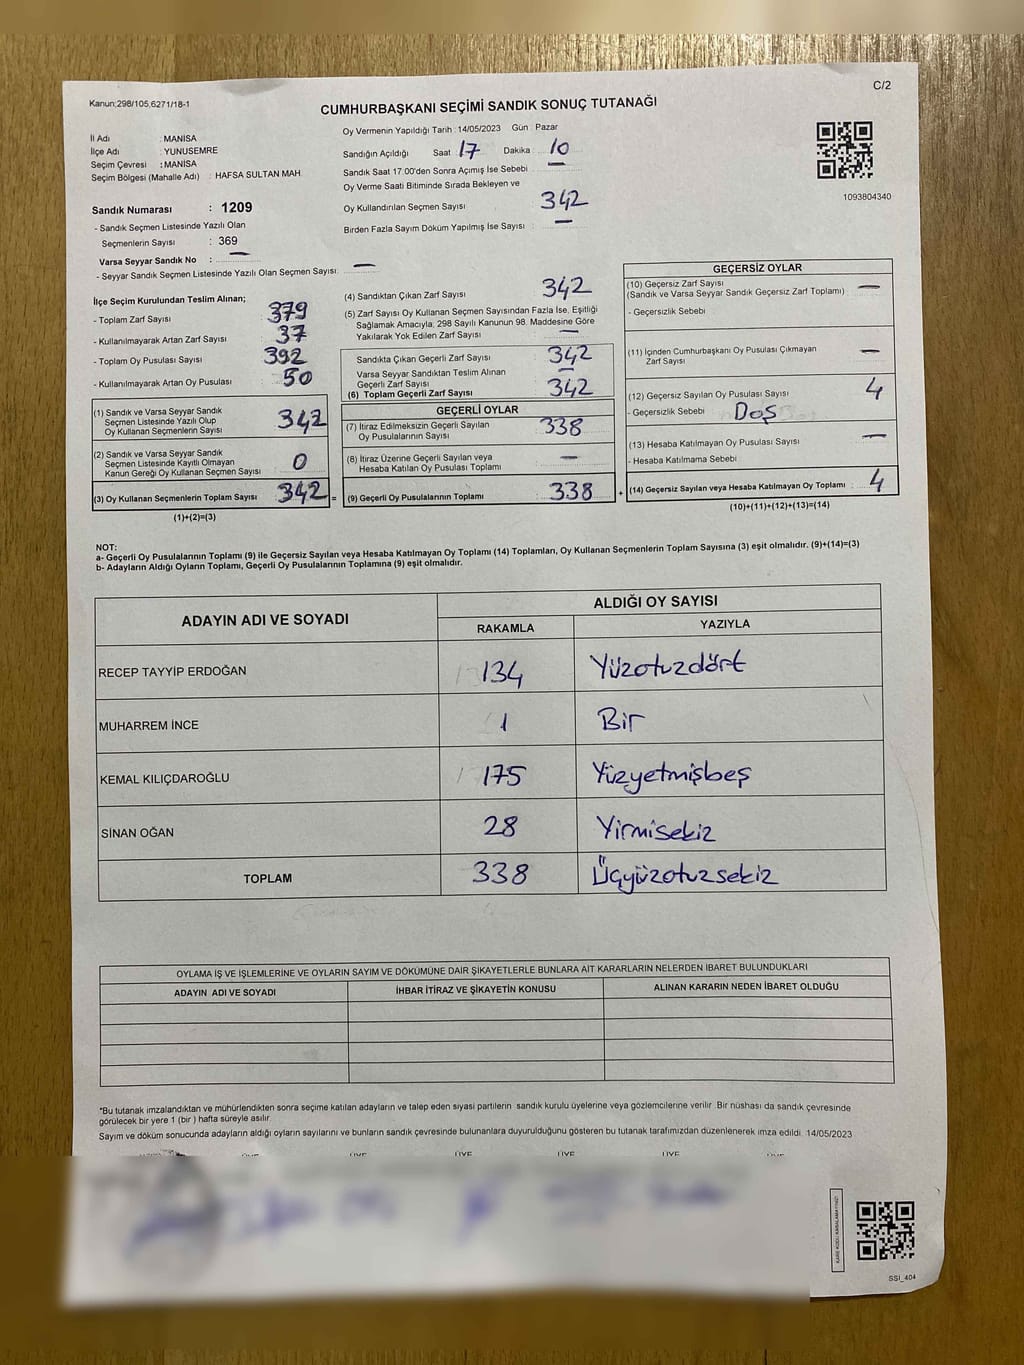 C/2
Kanun;298/105,6271/18-1
CUMHURBAŞKANI SEÇİMİ SANDIK SONUÇ TUTANAĞI
İl Adı : MANİSA
İlçe Adı : YUNUSEMRE
Seçim Çevresi : MANİSA
Seçim Bölgesi (Mahalle Adı) : HAFSA SULTAN MAH.
Sandık Numarası : 1209
- Sandık Seçmen Listesinde Yazılı Olan
Seçmenlerin Sayısı : 369
Varsa Seyyar Sandık No : —
- Seyyar Sandık Seçmen Listesinde Yazılı Olan Seçmen Sayısı: —
Oy Vermenin Yapıldığı Tarih : 14/05/2023 Gün : Pazar
Sandığın Açıldığı Saat 17 Dakika : 10
Sandık Saat 17:00'den Sonra Açımış İse Sebebi : —
Oy Verme Saati Bitiminde Sırada Bekleyen ve
Oy Kullandırılan Seçmen Sayısı : 342
Birden Fazla Sayım Döküm Yapılmış İse Sayısı : —
1093804340
İlçe Seçim Kurulundan Teslim Alınan;
- Toplam Zarf Sayısı : 379
- Kullanılmayarak Artan Zarf Sayısı : 37
- Toplam Oy Pusulası Sayısı : 392
- Kullanılmayarak Artan Oy Pusulası : 50
(1) Sandık ve Varsa Seyyar Sandık
Seçmen Listesinde Yazılı Olup
Oy Kullanan Seçmenlerin Sayısı : 342
(2) Sandık ve Varsa Seyyar Sandık
Seçmen Listesinde Kayıtlı Olmayan
Kanun Gereği Oy Kullanan Seçmen Sayısı : 0
(3) Oy Kullanan Seçmenlerin Toplam Sayısı : 342 =
(1)+(2)=(3)
(4) Sandıktan Çıkan Zarf Sayısı : 342
(5) Zarf Sayısı Oy Kullanan Seçmen Sayısından Fazla İse, Eşitliği
Sağlamak Amacıyla, 298 Sayılı Kanunun 98. Maddesine Göre
Yakılarak Yok Edilen Zarf Sayısı : —
Sandıkta Çıkan Geçerli Zarf Sayısı : 342
Varsa Seyyar Sandıktan Teslim Alınan
Geçerli Zarf Sayısı : —
(6) Toplam Geçerli Zarf Sayısı : 342
GEÇERLİ OYLAR
(7) İtiraz Edilmeksizin Geçerli Sayılan
Oy Pusulalarının Sayısı : 338
(8) İtiraz Üzerine Geçerli Sayılan veya
Hesaba Katılan Oy Pusulası Toplamı : —
(9) Geçerli Oy Pusulalarının Toplamı : 338 +
GEÇERSİZ OYLAR
(10) Geçersiz Zarf Sayısı
(Sandık ve Varsa Seyyar Sandık Geçersiz Zarf Toplamı) : —
- Geçersizlik Sebebi
(11) İçinden Cumhurbaşkanı Oy Pusulası Çıkmayan : —
Zarf Sayısı
(12) Geçersiz Sayılan Oy Pusulası Sayısı : 4
- Geçersizlik Sebebi : Doş
(13) Hesaba Katılmayan Oy Pusulası Sayısı : —
- Hesaba Katılmama Sebebi
(14) Geçersiz Sayılan veya Hesaba Katılmayan Oy Toplamı : 4
(10)+(11)+(12)+(13)=(14)
NOT:
a- Geçerli Oy Pusulalarının Toplamı (9) ile Geçersiz Sayılan veya Hesaba Katılmayan Oy Toplamı (14) Toplamları, Oy Kullanan Seçmenlerin Toplam Sayısına (3) eşit olmalıdır. (9)+(14)=(3)
b- Adayların Aldığı Oyların Toplamı, Geçerli Oy Pusulalarının Toplamına (9) eşit olmalıdır.
ADAYIN ADI VE SOYADI ALDIĞI OY SAYISI
RAKAMLA YAZIYLA
RECEP TAYYİP ERDOĞAN 134 Yüzotuzdört
MUHARREM İNCE 1 Bir
KEMAL KILIÇDAROĞLU 175 Yüzyetmişbeş
SİNAN OĞAN 28 Yirmisekiz
TOPLAM 338 Üçyüzotuzsekiz
OYLAMA İŞ VE İŞLEMLERİNE VE OYLARIN SAYIM VE DÖKÜMÜNE DAİR ŞİKAYETLERLE BUNLARA AİT KARARLARIN NELERDEN İBARET BULUNDUKLARI
ADAYIN ADI VE SOYADI İHBAR İTİRAZ VE ŞİKAYETİN KONUSU ALINAN KARARIN NEDEN İBARET OLDUĞU
*Bu tutanak imzalandıktan ve mühürlendikten sonra seçime katılan adayların ve talep eden siyasi partilerin sandık kurulu üyelerine veya gözlemcilerine verilir. Bir nüshası da sandık çevresinde
görülecek bir yere 1 (bir) hafta süreyle asılır.
Sayım ve döküm sonucunda adayların aldığı oyların sayılarını ve bunların sandık çevresinde bulunanlara duyurulduğunu gösteren bu tutanak tarafımızdan düzenlenerek imza edildi. 14/05/2023
ÜYE ÜYE ÜYE ÜYE ÜYE ÜYE
SSİ_404